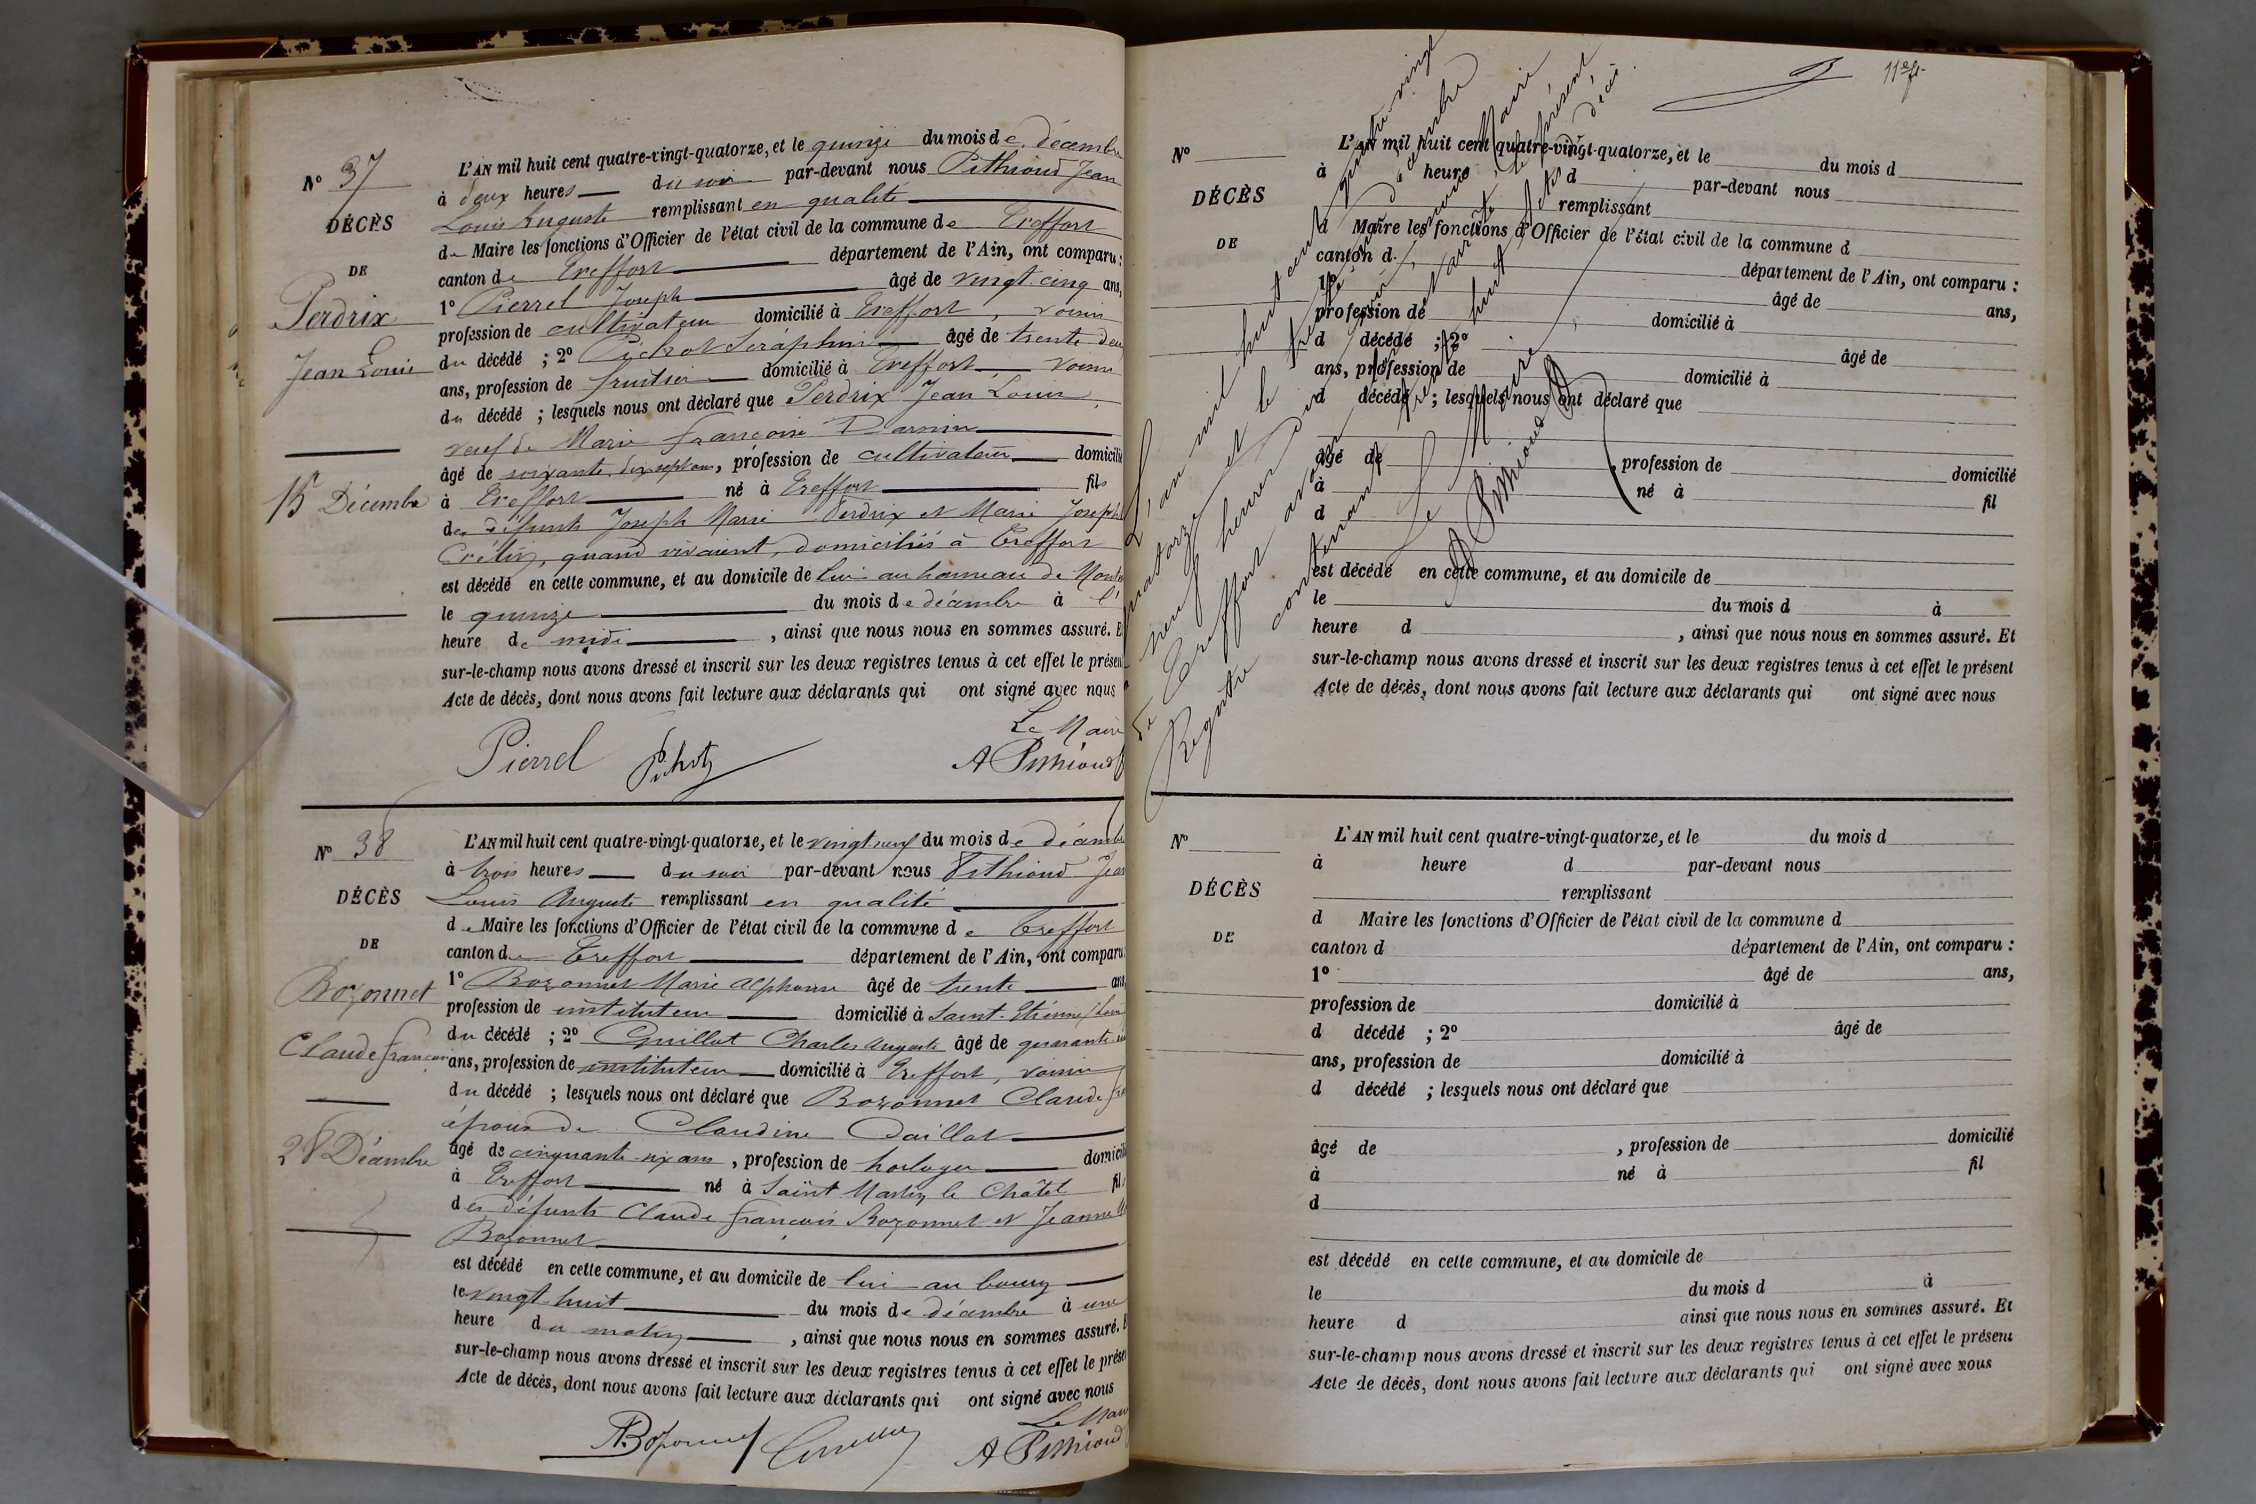 N° 37
DÉCÈS
DE
Perdrix
Jean Louis
15 Décembre
L'AN mil huit cent quatre-vingt-quatorze, et le quinze du mois de décembre
à deux heures du soir par-devant nous Pithioud Jean
Louis Auguste remplissant en qualité
de Maire les fonctions d'Officier de l'état civil de la commune de Treffort
canton de Treffort département de l'Ain, ont comparu :
1° Pierrel Joseph âgé de vingt-cinq ans,
profession de cultivateur domicilié à Treffort, voisin
du décédé ; 2° Séraphin âgé de trente deux
ans, profession de fruitier domicilié à Treffort voisin
du décédé ; lesquels nous ont déclaré que Perdrix Jean Louis,
veuf de Marie Françoise
âgé de soixante dix sept ans, profession de cultivateur domicilié
à Treffort né à Treffort fils
des défunts Joseph Marie Perdrix et Marie Joseph
quand vivaient, domiciliés à Treffort
est décédé en cette commune, et au domicile de lui au hameau de
le quinze du mois de décembre à l'
heure de midi, ainsi que nous nous en sommes assuré. Et
sur-le-champ nous avons dressé et inscrit sur les deux registres tenus à cet effet le présent
Acte de décès, dont nous avons fait lecture aux déclarants qui ont signé avec nous
Le Maire
Pierrel A Pithioud
N° 38
DÉCÈS
DE
Bozonnet
Claude françois
28 Décembre
L'AN mil huit cent quatre-vingt-quatorze, et le vingt neuf du mois de décembre
à trois heures du soir par-devant nous Pithioud Jean
Louis Auguste remplissant en qualité
de Maire les fonctions d'Officier de l'état civil de la commune de Treffort
canton de Treffort département de l'Ain, ont comparu :
1° Bozonnet Marie Alphonse âgé de trente ans,
profession de instituteur domicilié à Saint-Etienne
du décédé ; 2° Guillot Charles Auguste âgé de quarante
ans, profession de instituteur domicilié à Treffort, voisin
du décédé ; lesquels nous ont déclaré que Bozonnet Claude
époux de Claudine
âgé de cinquante six ans, profession de horloger domicilié
à Treffort né à Saint Martin le Châtel fils
des défunts Claude françois Bozonnet et Jeanne
Bozonnet
est décédé en cette commune, et au domicile de lui au bourg
le vingt huit du mois de décembre à une
heure du matin, ainsi que nous nous en sommes assuré. Et
sur-le-champ nous avons dressé et inscrit sur les deux registres tenus à cet effet le présent
Acte de décès, dont nous avons fait lecture aux déclarants qui ont signé avec nous
Le Maire
ABozonnet A Pithioud
L'an mil huit cent quatre vingt
quatorze et le trente un décembre
à neuf heures du soir, nous Maire
de Treffort avons clos et arrêté le présent
Registre contenant trente huit actes de décès.
Le Maire
A Pithioud
N°
DÉCÈS
DE
L'AN mil huit cent quatre-vingt-quatorze, et le du mois d
à heure d par-devant nous
remplissant
d Maire les fonctions d'Officier de l'état civil de la commune d
canton d département de l'Ain, ont comparu :
1° âgé de ans,
profession de domicilié à
d décédé ; 2° âgé de
ans, profession de domicilié à
d décédé ; lesquels nous ont déclaré que
âgé de , profession de domicilié
à né à fil
d
est décédé en cette commune, et au domicile de
le du mois d à
heure d , ainsi que nous nous en sommes assuré. Et
sur-le-champ nous avons dressé et inscrit sur les deux registres tenus à cet effet le présent
Acte de décès, dont nous avons fait lecture aux déclarants qui ont signé avec nous
N°
DÉCÈS
DE
L'AN mil huit cent quatre-vingt-quatorze, et le du mois d
à heure d par-devant nous
remplissant
d Maire les fonctions d'Officier de l'état civil de la commune d
canton d département de l'Ain, ont comparu :
1° âgé de ans,
profession de domicilié à
d décédé ; 2° âgé de
ans, profession de domicilié à
d décédé ; lesquels nous ont déclaré que
âgé de , profession de domicilié
à né à fil
d
est décédé en cette commune, et au domicile de
le du mois d à
heure d ainsi que nous nous en sommes assuré. Et
sur-le-champ nous avons dressé et inscrit sur les deux registres tenus à cet effet le présent
Acte de décès, dont nous avons fait lecture aux déclarants qui ont signé avec nous